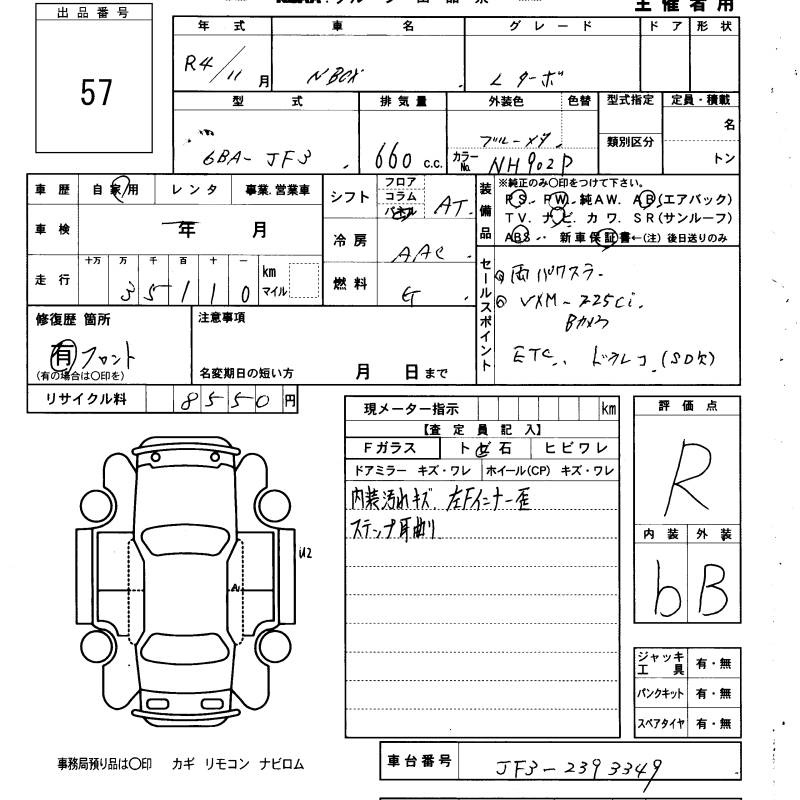 主催者用
出品番号
57
年式 車名 グレード ドア 形状
R4/11月 NBOX Lターボ
型式 排気量 外装色 色替 型式指定 定員・積載
類別区分
名
トン
6BA-JF3 660 c.c. ブルーメタ
カラーNo. NH902P
車歴 自家用 レンタ 事業.営業車
車検 年 月
走行 十万 万 千 百 十 一 km マイル
35110
シフト フロア コラム パネル AT
冷房 AAC
燃料 G
装備品
※純正のみ○印をつけて下さい。
PS. PW. 純AW. AB(エアバック)
TV. ナビ カワ. SR(サンルーフ)
ABS. 新車保証書←(注)後日送りのみ
セールスポイント
両パワスラ
VXM-225Ci.
Bカメラ
ETC.. ドラレコ.(SD欠)
修復歴 箇所
有 フロント
(有の場合は○印を)
注意事項
名変期日の短い方 月 日まで
リサイクル料 8550円
現メーター指示 km
【査定員記入】
Fガラス トビ石 ヒビワレ
ドアミラー キズ・ワレ ホイール(CP) キズ・ワレ
内装汚れキズ. 左Fインナー歪
ステップ耳曲り
評価点
R
内装 外装
b B
U2
A1
ジャッキ工具 有・無
パンクキット 有・無
スペアタイヤ 有・無
事務局預り品は○印 カギ リモコン ナビロム
車台番号 JF3-2393349